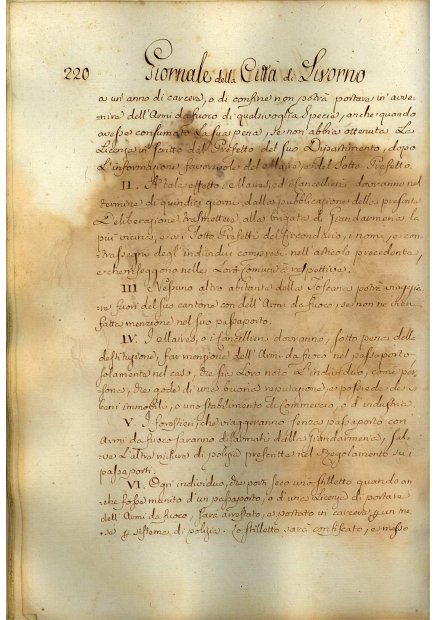 220 Giornale della Città di Livorno
a un' anno di carcere, o di confine non potrà portare in' avve-
nire dell'Armi da fuoco di qualsivoglia Specie, anche quando
avesse consumato la sua pena, se non abbia ottenuta la
Licenza in scritto del Prefetto del suo Dipartimento, dopo
l'informazione favorevole del Maire, e del Sotto Prefetto.
II. A tale effetto, e Maires, ed Cancellieri dovranno nel
termine di quindici giorni, dalla pubblicazione della presente
Deliberazione trasmettere alla brigata di Giandarmeria la
più vicina, e ai Sotto Prefetti del Circondario, i nomi, e con-
trassegni degl'individui compresi nell'articolo precedente,
e che risseggono nelle loro Comunità respettive.
III Nessuno altro abitante della Toscana potrà viaggia-
re fuori del suo cantone con dell'Armi da fuoco, se non ne abbia
fatta menzione nel suo passaporto.
IV. I Maires, o i Cancellieri dovranno, sotto pena della
destituzione, far menzione dell'Armi da fuoco nel passaporto
solamente nel caso, che sia loro noto l'individuo, come per-
sona, che gode di una buona reputazione, e possiede dei
beni immobili, o uno stabilimento di Commercio, o d'industria.
V. I forestieri, che viaggeranno senza passaporto con
Armi da fuoco saranno disarmati dalla Giandarmeria, sal-
ve l'altre misure di polizia prescritte nel Regolamento sui
passaporti.
VI. Ogni individuo, che porti seco uno stiletto quando an-
che fosse munito d'un passaporto, o d'una Licenza di portare
dell'Armi da fuoco, sarà arrestato, e portato in carcere per un me-
se per sistema di polizia. Lo stiletto sarà confiscato, e messo